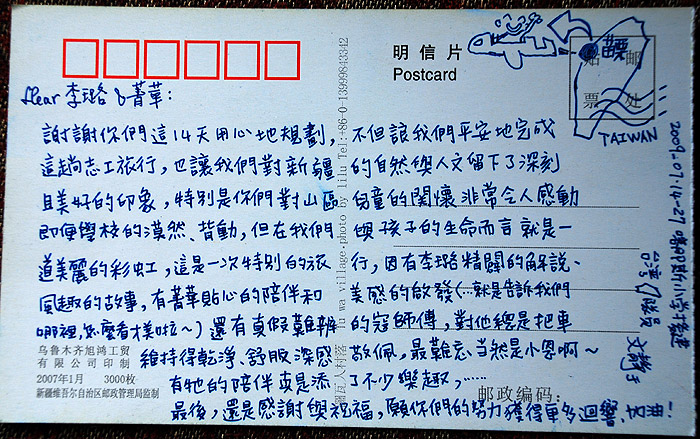 明信片
Postcard
贴 邮
票 处
苗栗
TAIWAN
dear 李璐 & 菁華：
謝謝你們這14天用心地規劃，不但讓我們平安地完成
這趟志工旅行，也讓我們對新疆的自然與人文留下了深刻
且美好的印象，特別是你們對山區兒童的關懷非常令人感動
即便學校的漠然、背動，但在我們與孩子的生命而言就是一
道美麗的彩虹，這是一次特別的旅行，因有李璐精闢的解說、
風趣的故事，有菁華貼心的陪伴和美感的啟發（…就是告訴我們
哪裡，怎麼看才美啦~）還有真假難辨的寇師傅，對他總是把車
維持得乾淨、舒服深感敬佩，最難忘当然是小恩啊~
有牠的陪伴或是添了不少樂趣，……
最後，還是感謝與祝福，願你們的努力獲得更多迴響
2009.07.14-27
台灣隊員
乌鲁木齐旭鸿工贸
有限公司印制
2007年1月 3000枚
新疆维吾尔自治区邮政管理局监制
邮政编码：
village·photo by lilu Tel:+86-0-13999843342